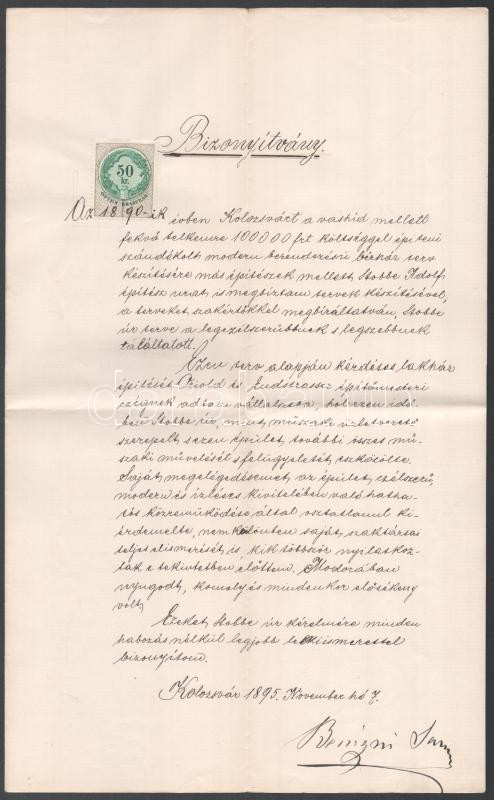 Bizonyítvány.
50
kr.
Az 1890-ik évben Kolozsvárt a vashid mellett
fekvő telkemre 100000 frt költséggel épiteni
szándékolt modern berendezésü bérház terv
készitésére más épitészek mellett Stobbe Adolf
épitész urat is megbiztam tervek készitésével,
a terveket szakértőkkel megbiráltatván, Stobbe
úr terve a legczélszerübbnek s legszebbnek
találtatott.
Ezen terv alapján kérdéses lakház
épitését és építőmesteri
czégnek adtam vállalatba, hol ezen idő
ben Stobbe úr, mint műszaki üzletvezető
szerepelt s ezen épület további összes mű-
szaki művelését s felügyeletét eszközölte.
Saját megelégedésemet az épület czélszerű,
modern és izléses kivitelében való hatha-
tós közremüködése által osztatlanul ki-
érdemelte, nem különben saját szaktársai
teljes elismerését is, kik többször nyilatkoz-
tak e tekintetben előttem. Modorában
nyugodt, komoly és mindenkor előzékeny
volt.
Ezeket Stobbe úr kérelmére minden
habozás nélkül legjobb lelkiismerettel
bizonyitom.
Kolozsvár 1895. November hó 7.
Benigni